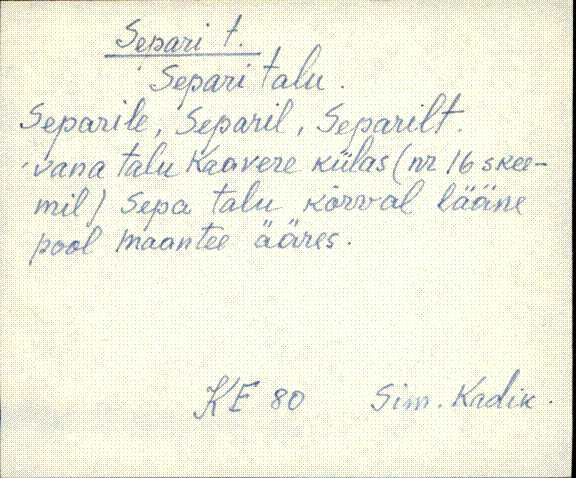 Separi t.
Separi talu.
Separile, Separil, Separilt.
vana talu Kaavere külas (nr 16 skee-
mil) Sepa talu kõrval lääne
pool maantee ääres.
KE 80 Sim. Kadik.